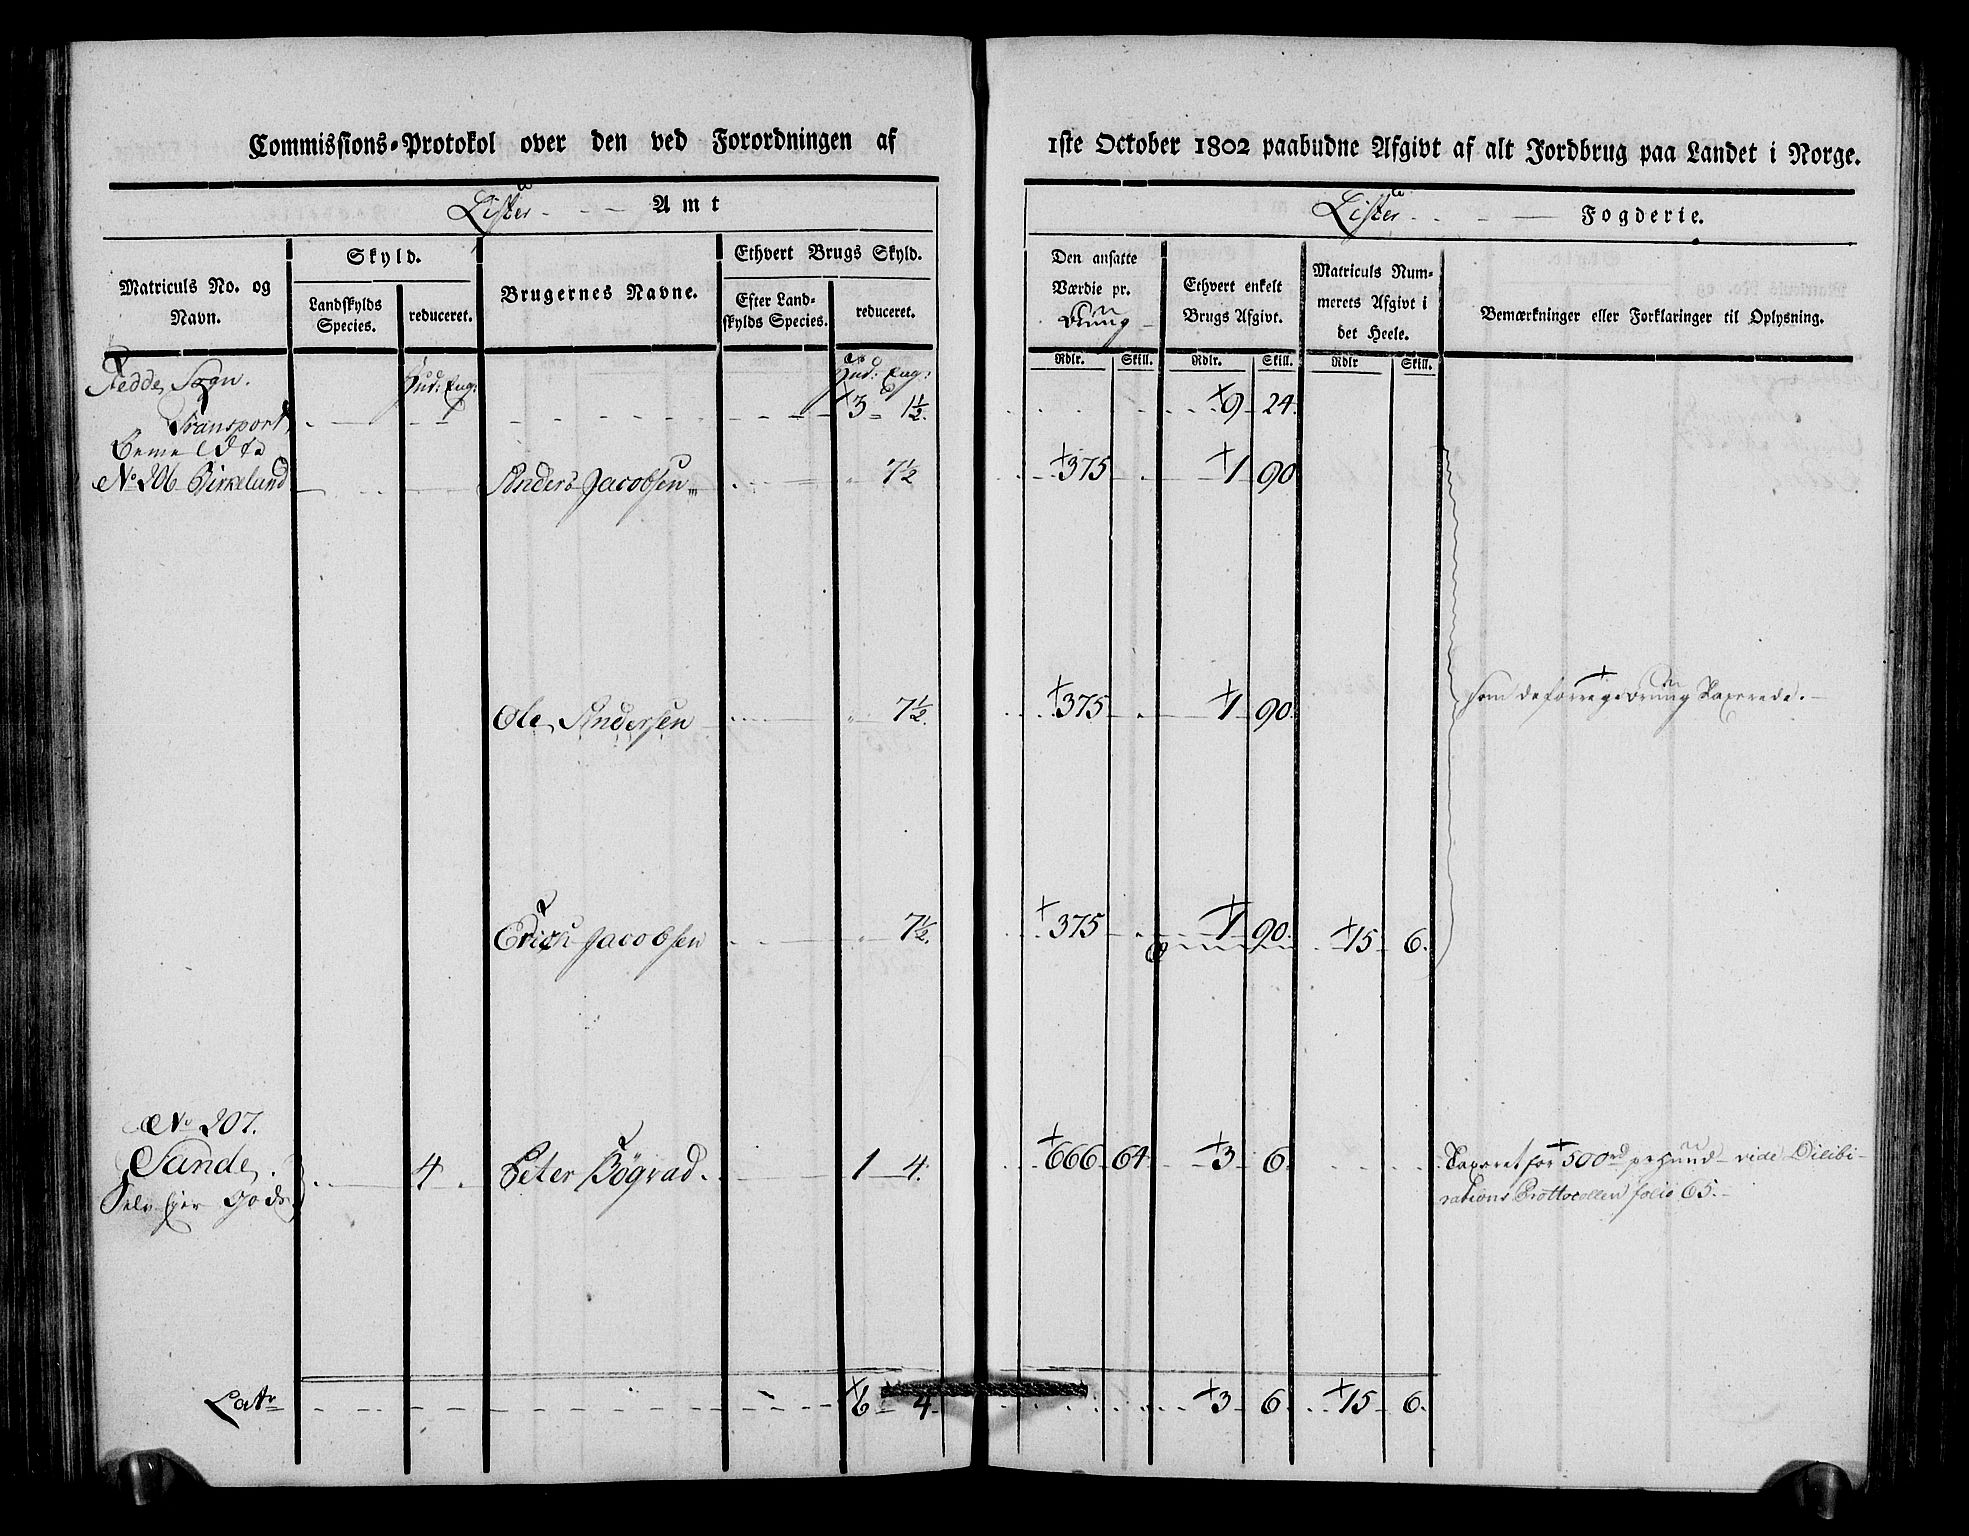 Commissions-Protokol over den ved Forordningen af 1ste October 1802 paabudne Afgivt af alt Jordbrug paa Landet i Norge.
Lister Amt
Lister Fogderie.
Matriculs No. og Navn.
Skyld.
Landskylds Species.
reduceret.
Brugernes Navne.
Ethvert Brugs Skyld.
Efter Landskylds Species.
reduceret.
Den ansatte Værdie pr.
Ethvert enkelt Brugs Afgivt.
Matriculs Nummerets Afgivt i det Heele.
Bemærkninger eller Forklaringer til Oplysning.
Rdlr. Skill. Rdlr. Skill. Rdlr Skill.
Fedde Sogn. Hud: Eng: Hud: Eng:
Transport 3 1½ 9 24
No 206 Birkelund Anders Jacobsen 7½ 375 1 90
Ole Andersen 7½ 375 1 90
Erich Jacobsen 7½ 375 1 90 15 6
No 207.
Sande 4 Peter Bögvad 1 4 666 64 3 6 Taxeret for 500 rd pr hund vide Dilibi-
Selv Ejer Gods rations Prottocollen folio 65.
Lats 6 4 3 6 15 6